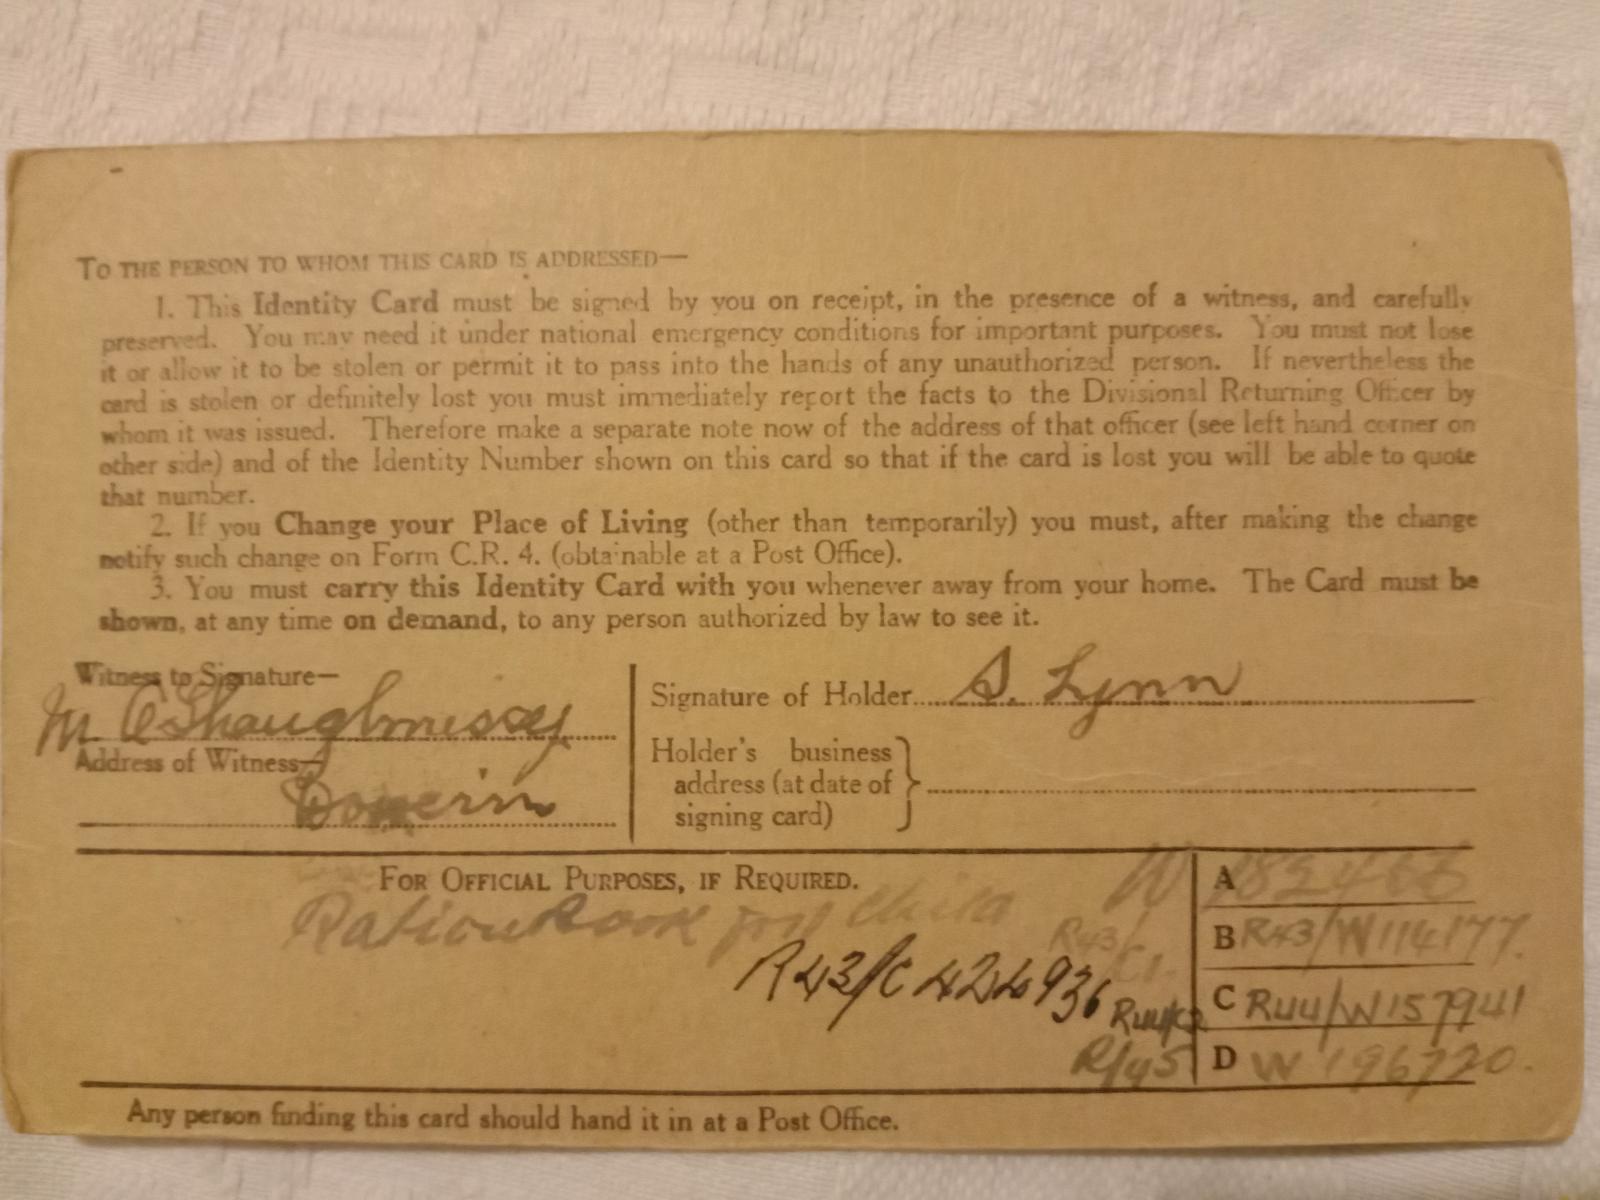 TO THE PERSON TO WHOM THIS CARD IS ADDRESSED—
1. This Identity Card must be signed by you on receipt, in the presence of a witness, and carefully
preserved. You may need it under national emergency conditions for important purposes. You must not lose
it or allow it to be stolen or permit it to pass into the hands of any unauthorized person. If nevertheless the
card is stolen or definitely lost you must immediately report the facts to the Divisional Returning Officer by
whom it was issued. Therefore make a separate note now of the address of that officer (see left hand corner on
other side) and of the Identity Number shown on this card so that if the card is lost you will be able to quote
that number.
2. If you Change your Place of Living (other than temporarily) you must, after making the change
notify such change on Form C.R. 4. (obtainable at a Post Office).
3. You must carry this Identity Card with you whenever away from your home. The Card must be
shown, at any time on demand, to any person authorized by law to see it.
Witness to Signature—
M O'Shaughnessy
Address of Witness—
Signature of Holder S. Lynn
Holder's business
address (at date of
signing card)
FOR OFFICIAL PURPOSES, IF REQUIRED.
Ration Book for child
R43/C 424936
R/45
W
A
B R43/W114177.
C R44/W157941
D W 196720.
Any person finding this card should hand it in at a Post Office.